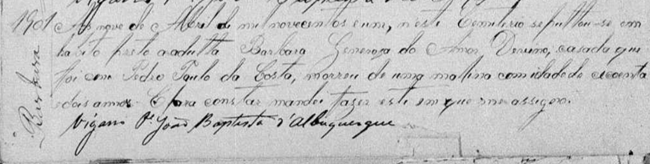 1901 Aos nove de Abril de mil novecentos e um, neste Cemiterio sepultou-se em
habito preto a adulta Barbara Generoza do Amor Devino, casada que
foi com Pedro Paulo da Costa, morreu de uma malina com idade de
e dois annos. E para constar mandei fazer este em que me assigno.
Vigario Pe. João Baptista d'Albuquerque
Barbara